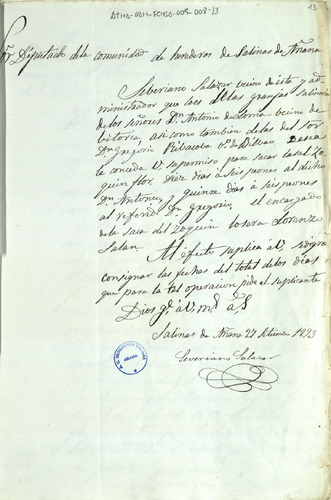 ATHA-DAH-FCMSA-009-008-13
13
Sor Diputado de la comunidad de herederos de Salinas de Añana
Severiano Salazar vecino de esta y ad=
ministrador que lo es de las granjas salinas
de los Señores Dn. Antonio de vecino de
bitoria, asi como tambien de las del Sor
Dn Gregorio Ribacoba vo. de Bilbao. Desea
le conceda V. su permiso para sacar la sal
quin flor. Diez dias o suspones al dicho
Dn Antonio, y quince dias o suspones
al referido Dn. Gregorio, el encargado
de la saca del zaquin lo sera Lorenzo
Salan.
Al efecto suplica a V. se digne
consignar las fechas del total de los dias
que para la tal operacion pide el suplicante
Dios ge. a V. ms. as.
Salinas de Añana 27 Setiembre 1893
Severiano Salazar
AÑANA